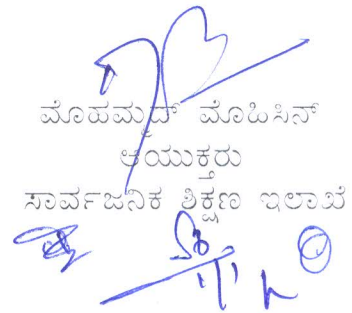 ಮೊಹಮ್ಮದ್ ಮೊಹಿಸಿನ್
ಆಯುಕ್ತರು
ಸಾರ್ವಜನಿಕ ಶಿಕ್ಷಣ ಇಲಾಖೆ